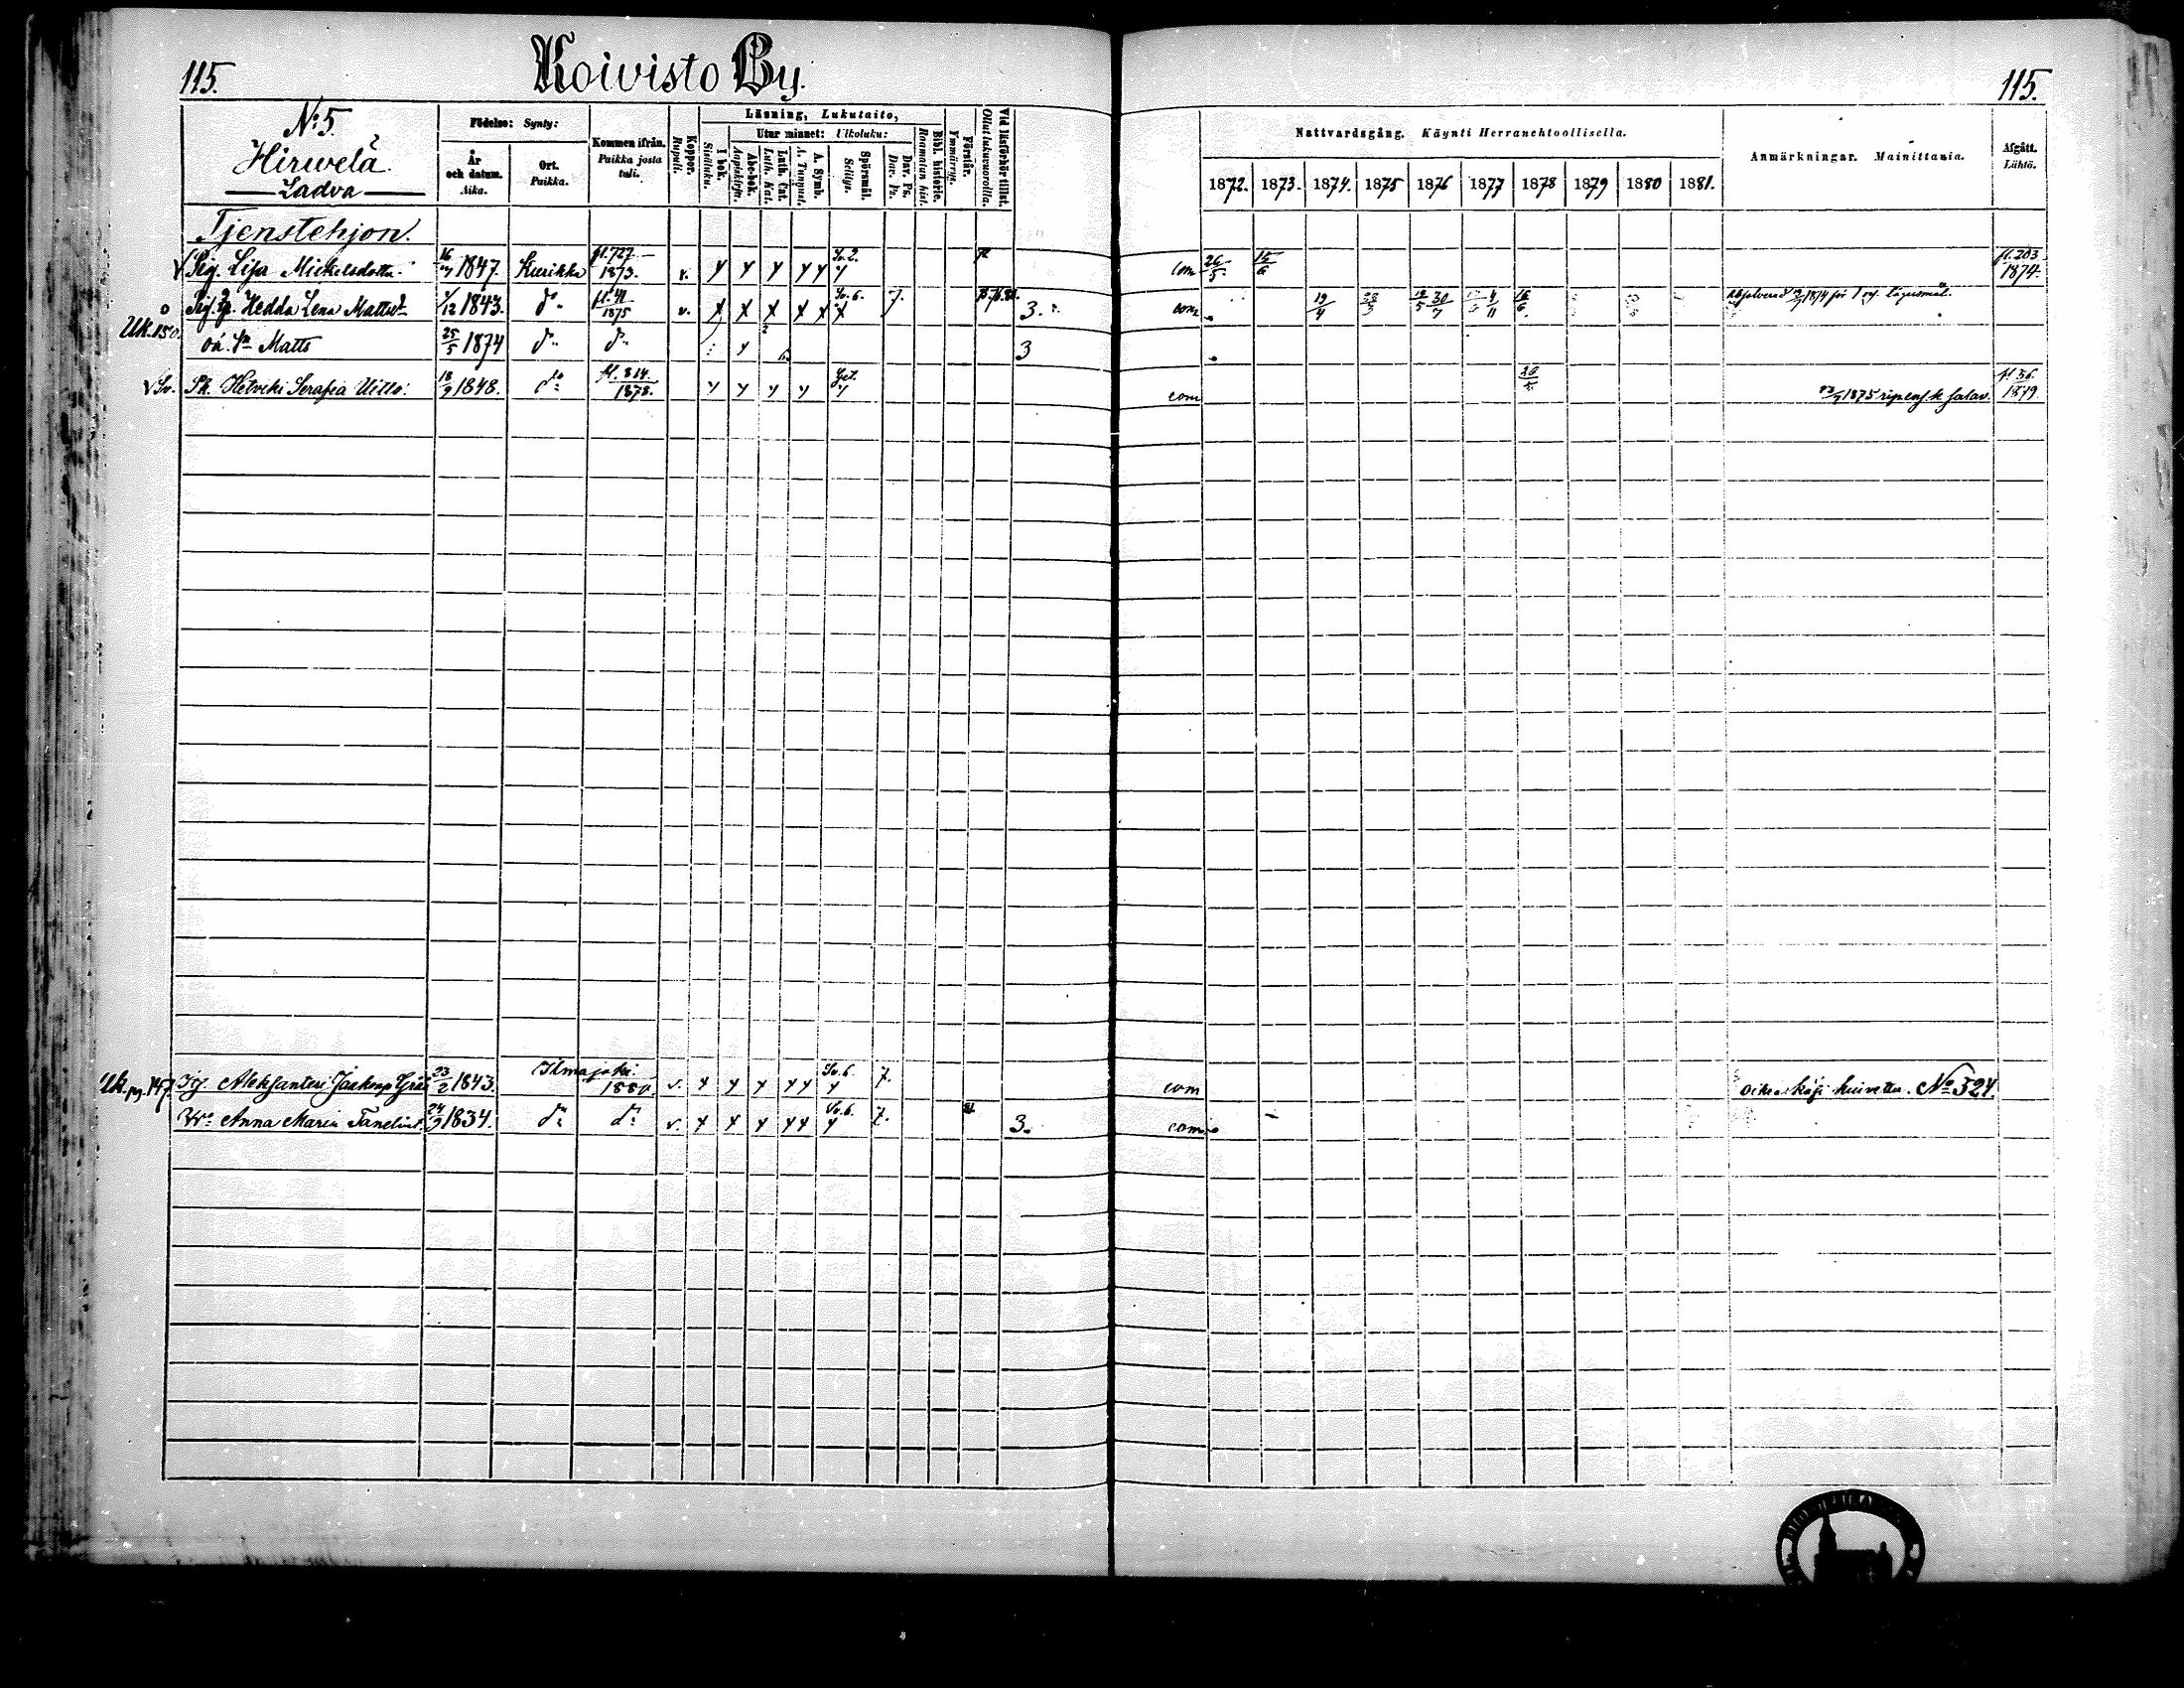 115.
Koivisto By.
115.
No. 5.
Hirwelä
Ladva
Födelse: Synty:
År och datum. Aika.
Ort. Paikka.
Kommen ifrån. Paikka josta tuli.
Koppor. Rupuli.
Läsning, Lukutaito,
I bok. Sisäluku.
Utur minnet: Ulkoluku:
Abc-bok. Aapiskirja.
Luth. Cat. Luth. Kat.
A. Symb. A. Tunnust.
Spörsmål. Selitys.
Dav. Ps. Dav. Ps.
Bibl. historie. Raamatun hist.
Förstår. Ymmärrys.
Vid läsförhör tillst. Ollut lukuvuorolla.
Nattvardsgång. Käynti Herranehtoollisella.
1872. 1873. 1874. 1875 1876 1877 1878 1879 1880 1881.
Anmärkningar. Mainittania.
Afgått. Lähtö.
Tjenstehjon.
Pig. Lisa Mickelsdotter 16 1847 Kurikka fl. 727 1873. v. Sv. 2. com 26/5 15/6 fl. 203 1874.
Hedda Lena Mattsd. 1/12 1843. do fl. 41 1875 v. Sv. 6. 7. 3. com 19/4 16/6 1874 för 1 lägersmål.
Uk. 150.
oä. Sn Matts 25/5 1874 do do 3
Sv. Pk. Helviki Serafia Uitto. 18/9 1848. do fl. 814 1878. com 1875 fl. 56. 1879.
Uk. pg. 147. Aleksanteri Jaakonp. 23/2 1843. Ilmajoki. 1880. v. Sv. 6. 7. com käsi kuivettu. No. 524.
Wo Anna Maria Tanelint. 24/9 1834. do do v. Sv. 6. 7. 3. com